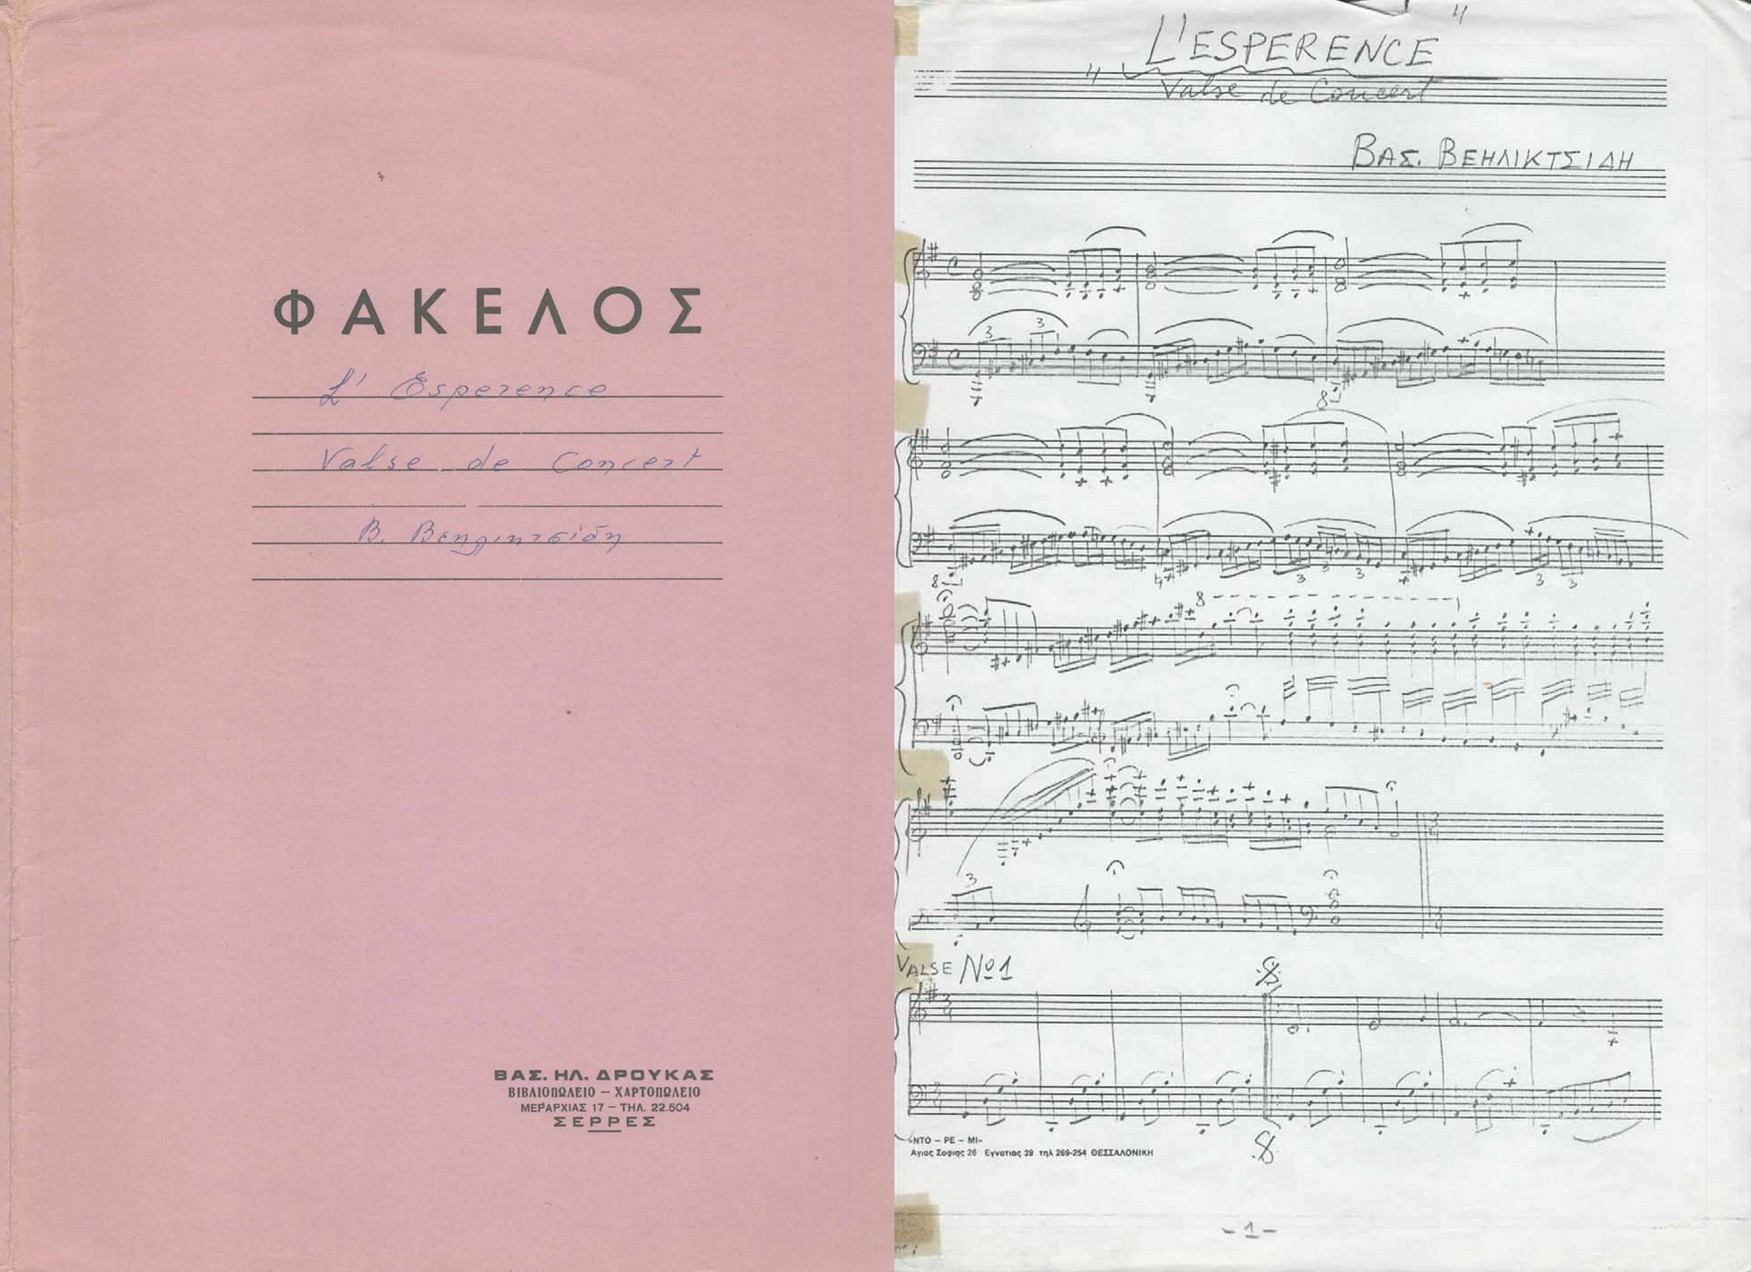 ΦΑΚΕΛΟΣ
L' Esperence
Valse de Concert
Β. Βεηλικτσίδη
ΒΑΣ. ΗΛ. ΔΡΟΥΚΑΣ
ΒΙΒΛΙΟΠΩΛΕΙΟ – ΧΑΡΤΟΠΩΛΕΙΟ
ΜΕΡΑΡΧΙΑΣ 17 – ΤΗΛ. 22.504
ΣΕΡΡΕΣ
"L'ESPERENCE"
Valse de Concert
ΒΑΣ. ΒΕΗΛΙΚΤΣΙΔΗ
3 3
8
8
3 3 3 3 3
8
3
VALSE Νο 1
3/4
«ΝΤΟ – ΡΕ – ΜΙ»
Αγιας Σοφιας 26 Εγνατιας 39 τηλ 269-254 ΘΕΣΣΑΛΟΝΙΚΗ
-1-